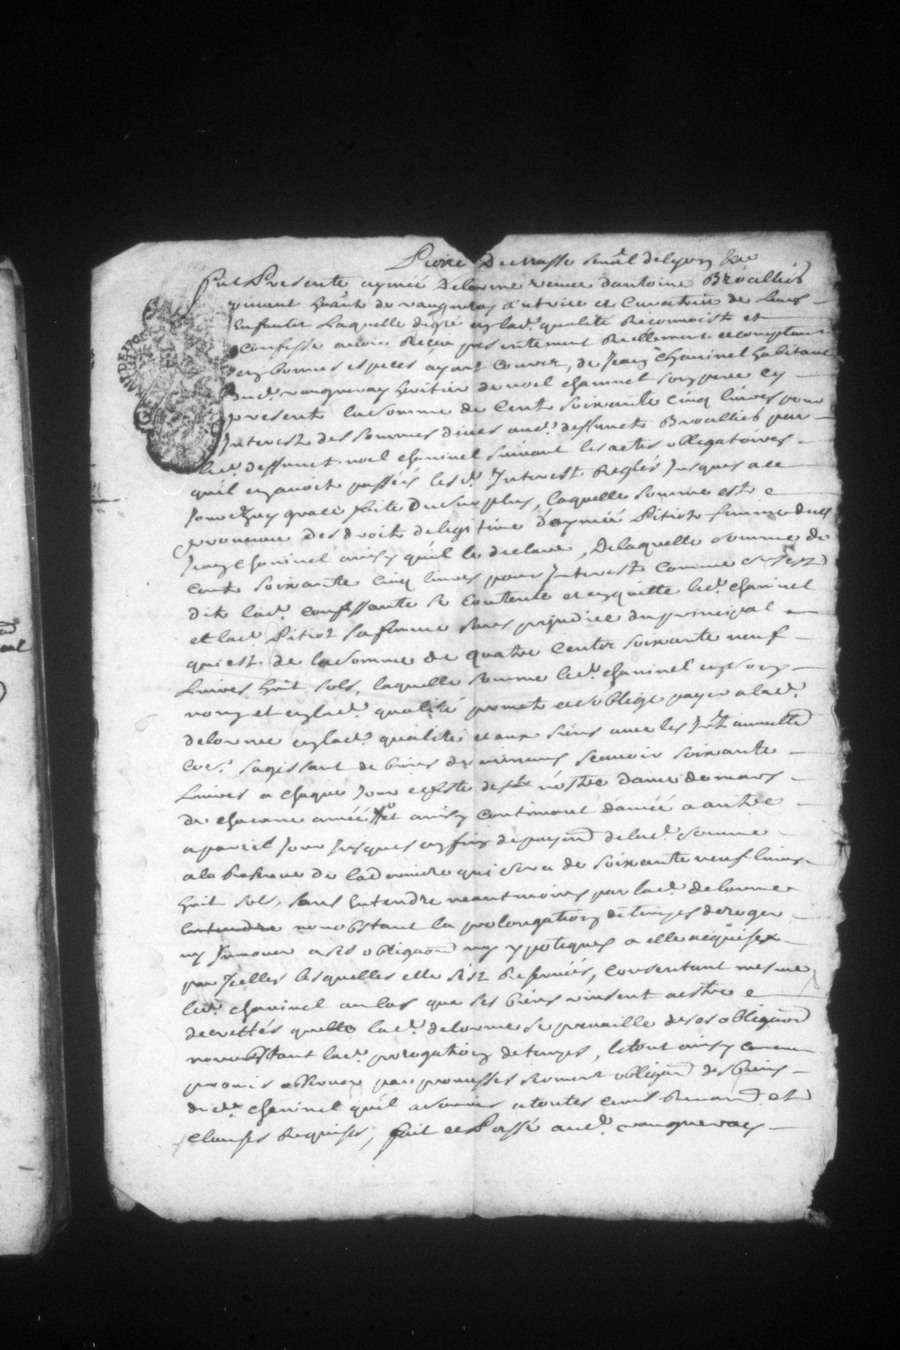 fut Presente aymée Delorme veuve d'antoine Broalliet
vivant de vaugneray tutrice et Curatrice de leurs
Enfants Laquelle de gré en lad. qualité Reconnoist et
Confesse avoir Reçeu presentement Réellement et comptant
en bonnes especes ayant Cours, de Jean Chaninel habitant
dud. vaugneray heritier de noel chaninel son pere cy
present la somme de Cent soixante cinq livres pour
Interest des sommes dues aud. deffunct Broalliet par
led. deffunct noel chaninel suivant les actes obligatoires
qu'il en avoit passés lesd. Interest Reglés Jusques a ce
Jourd'huy laquelle somme est
provenue des droits de legitime d'aymée Pitiot femme dud.
Jean Chaninel ainsy qu'il le declare, De laquelle somme de
Cent soixante cinq livres pour Interest comme est
dit lad. confessante se Contente et en quitte led. chaninel
et lad. Pitiot sa femme sans prejudice du principal
qui est de la somme de quatre Centz soixante neuf
Livres huit sols, laquelle somme led. chaninel en son
nom et en lad. qualité promet et s'oblige payer a lad.
delorme en lad. qualité et aux siens avec les
sagissant de biens de mineurs scavoir soixante
Livres a chaque Jour et feste de nostre dame de mars
de chacune année et ainsy Continuant d'année a autre
a pareil Jour Jusques en fin de payem de lad. somme
a la Reserve de la derniere qui sera de soixante neuf livres
huit sols, sans Entendre neantmoins par lad. delorme
nonobstant la prolongation de temps deroger
ny Innover a ses obligaon ny ypoteques a elle acquises
par Icelles lesquelles elle s'est Reservées, Consentant mesme
led. chaninel au cas que ses biens vinsent a estre
decrettés que lad. delorme se prevaille de ses obligaon
nonobstant lad. prorogation de temps, le tout ainsy
promis observer par promesses serment obligaon des biens
dud. chaninel qu'il a soumis a toutes Cours Renon et
Clauses Requises, fait et Passé aud. vaugneray